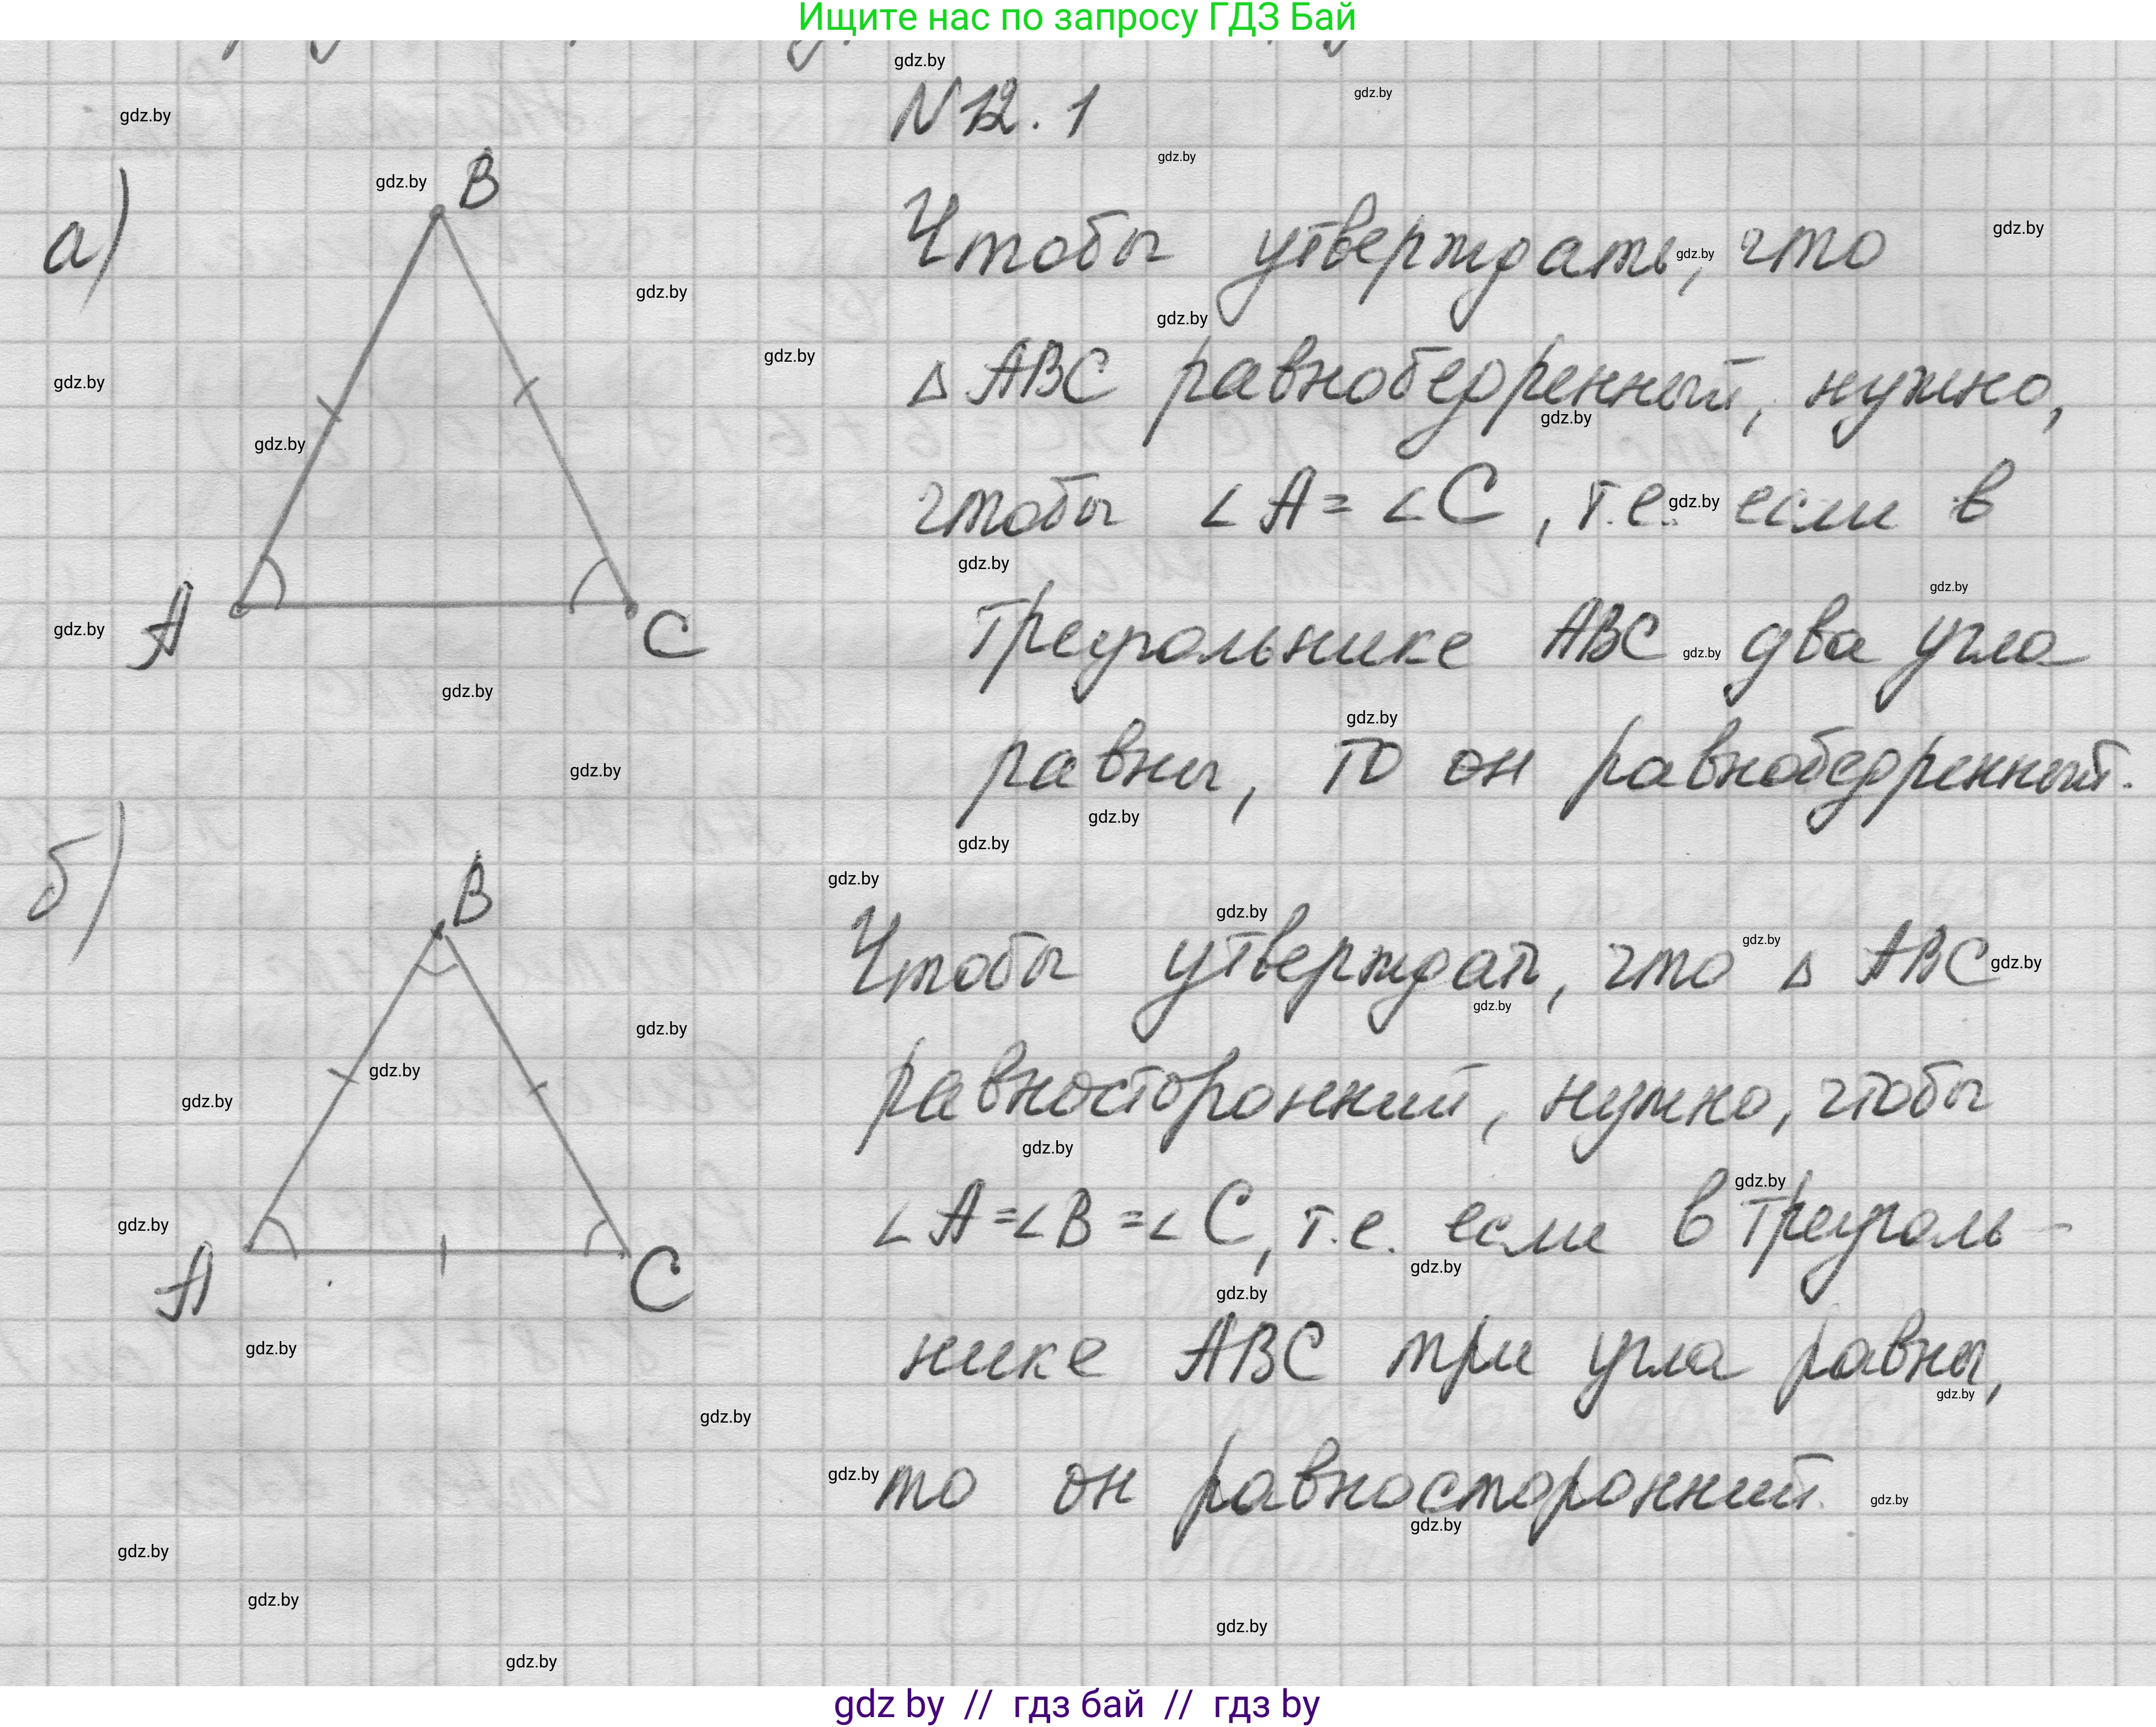 Ищите нас по запросу ГДЗ Бай
N 12.1
а)
B
A
C
Чтобы утверждать, что
△ ABC равнобедренный, нужно,
чтобы ∠A = ∠C, т.е. если в
треугольнике ABC два угла
равны, то он равнобедренный.
б)
B
A
C
Чтобы утверждать, что △ ABC
равносторонний, нужно, чтобы
∠A = ∠B = ∠C, т.е. если в треуголь-
нике ABC три угла равны,
то он равносторонний.
gdz by // гдз бай // гдз by